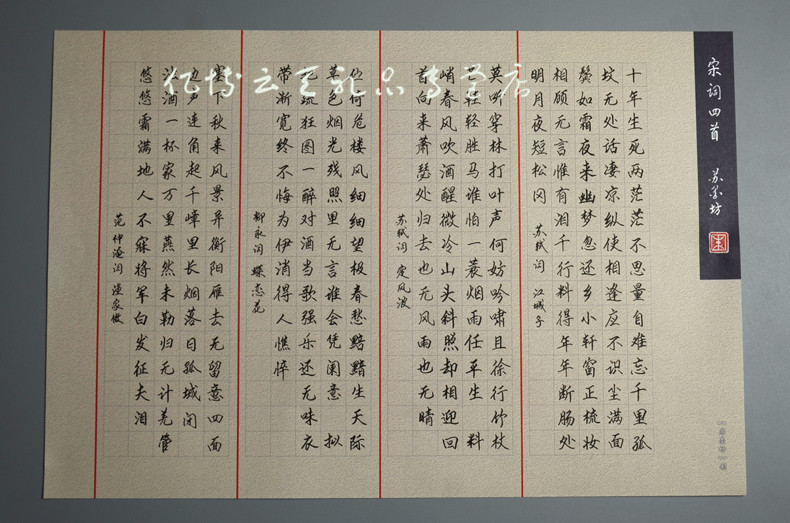 亿博云天礼品专营店
宋词四首
十年生死两茫茫不思量自难忘千里孤
坟无处话凄凉纵使相逢应不识尘满面
鬓如霜夜来幽梦忽还乡小轩窗正梳妆
相顾无言惟有泪千行料得年年断肠处
明月夜短松冈 苏轼词 江城子
莫听穿林打叶声何妨吟啸且徐行竹杖
芒轻轻胜马谁怕一蓑烟雨任平生 料
峭春风吹酒醒微冷山头斜照却相迎回
首向来萧瑟处归去也无风雨也无晴
苏轼词 定风波
伫倚危楼风细细望极春愁黯黯生天际
草色烟光残照里无言谁会凭阑意 拟
把疏狂图一醉对酒当歌强乐还无味衣
带渐宽终不悔为伊消得人憔悴
柳永词 蝶恋花
塞下秋来风景异衡阳雁去无留意四面
边声连角起千嶂里长烟落日孤城闭
浊酒一杯家万里燕然未勒归无计羌管
悠悠霜满地人不寐将军白发征夫泪
范仲淹词 渔家傲